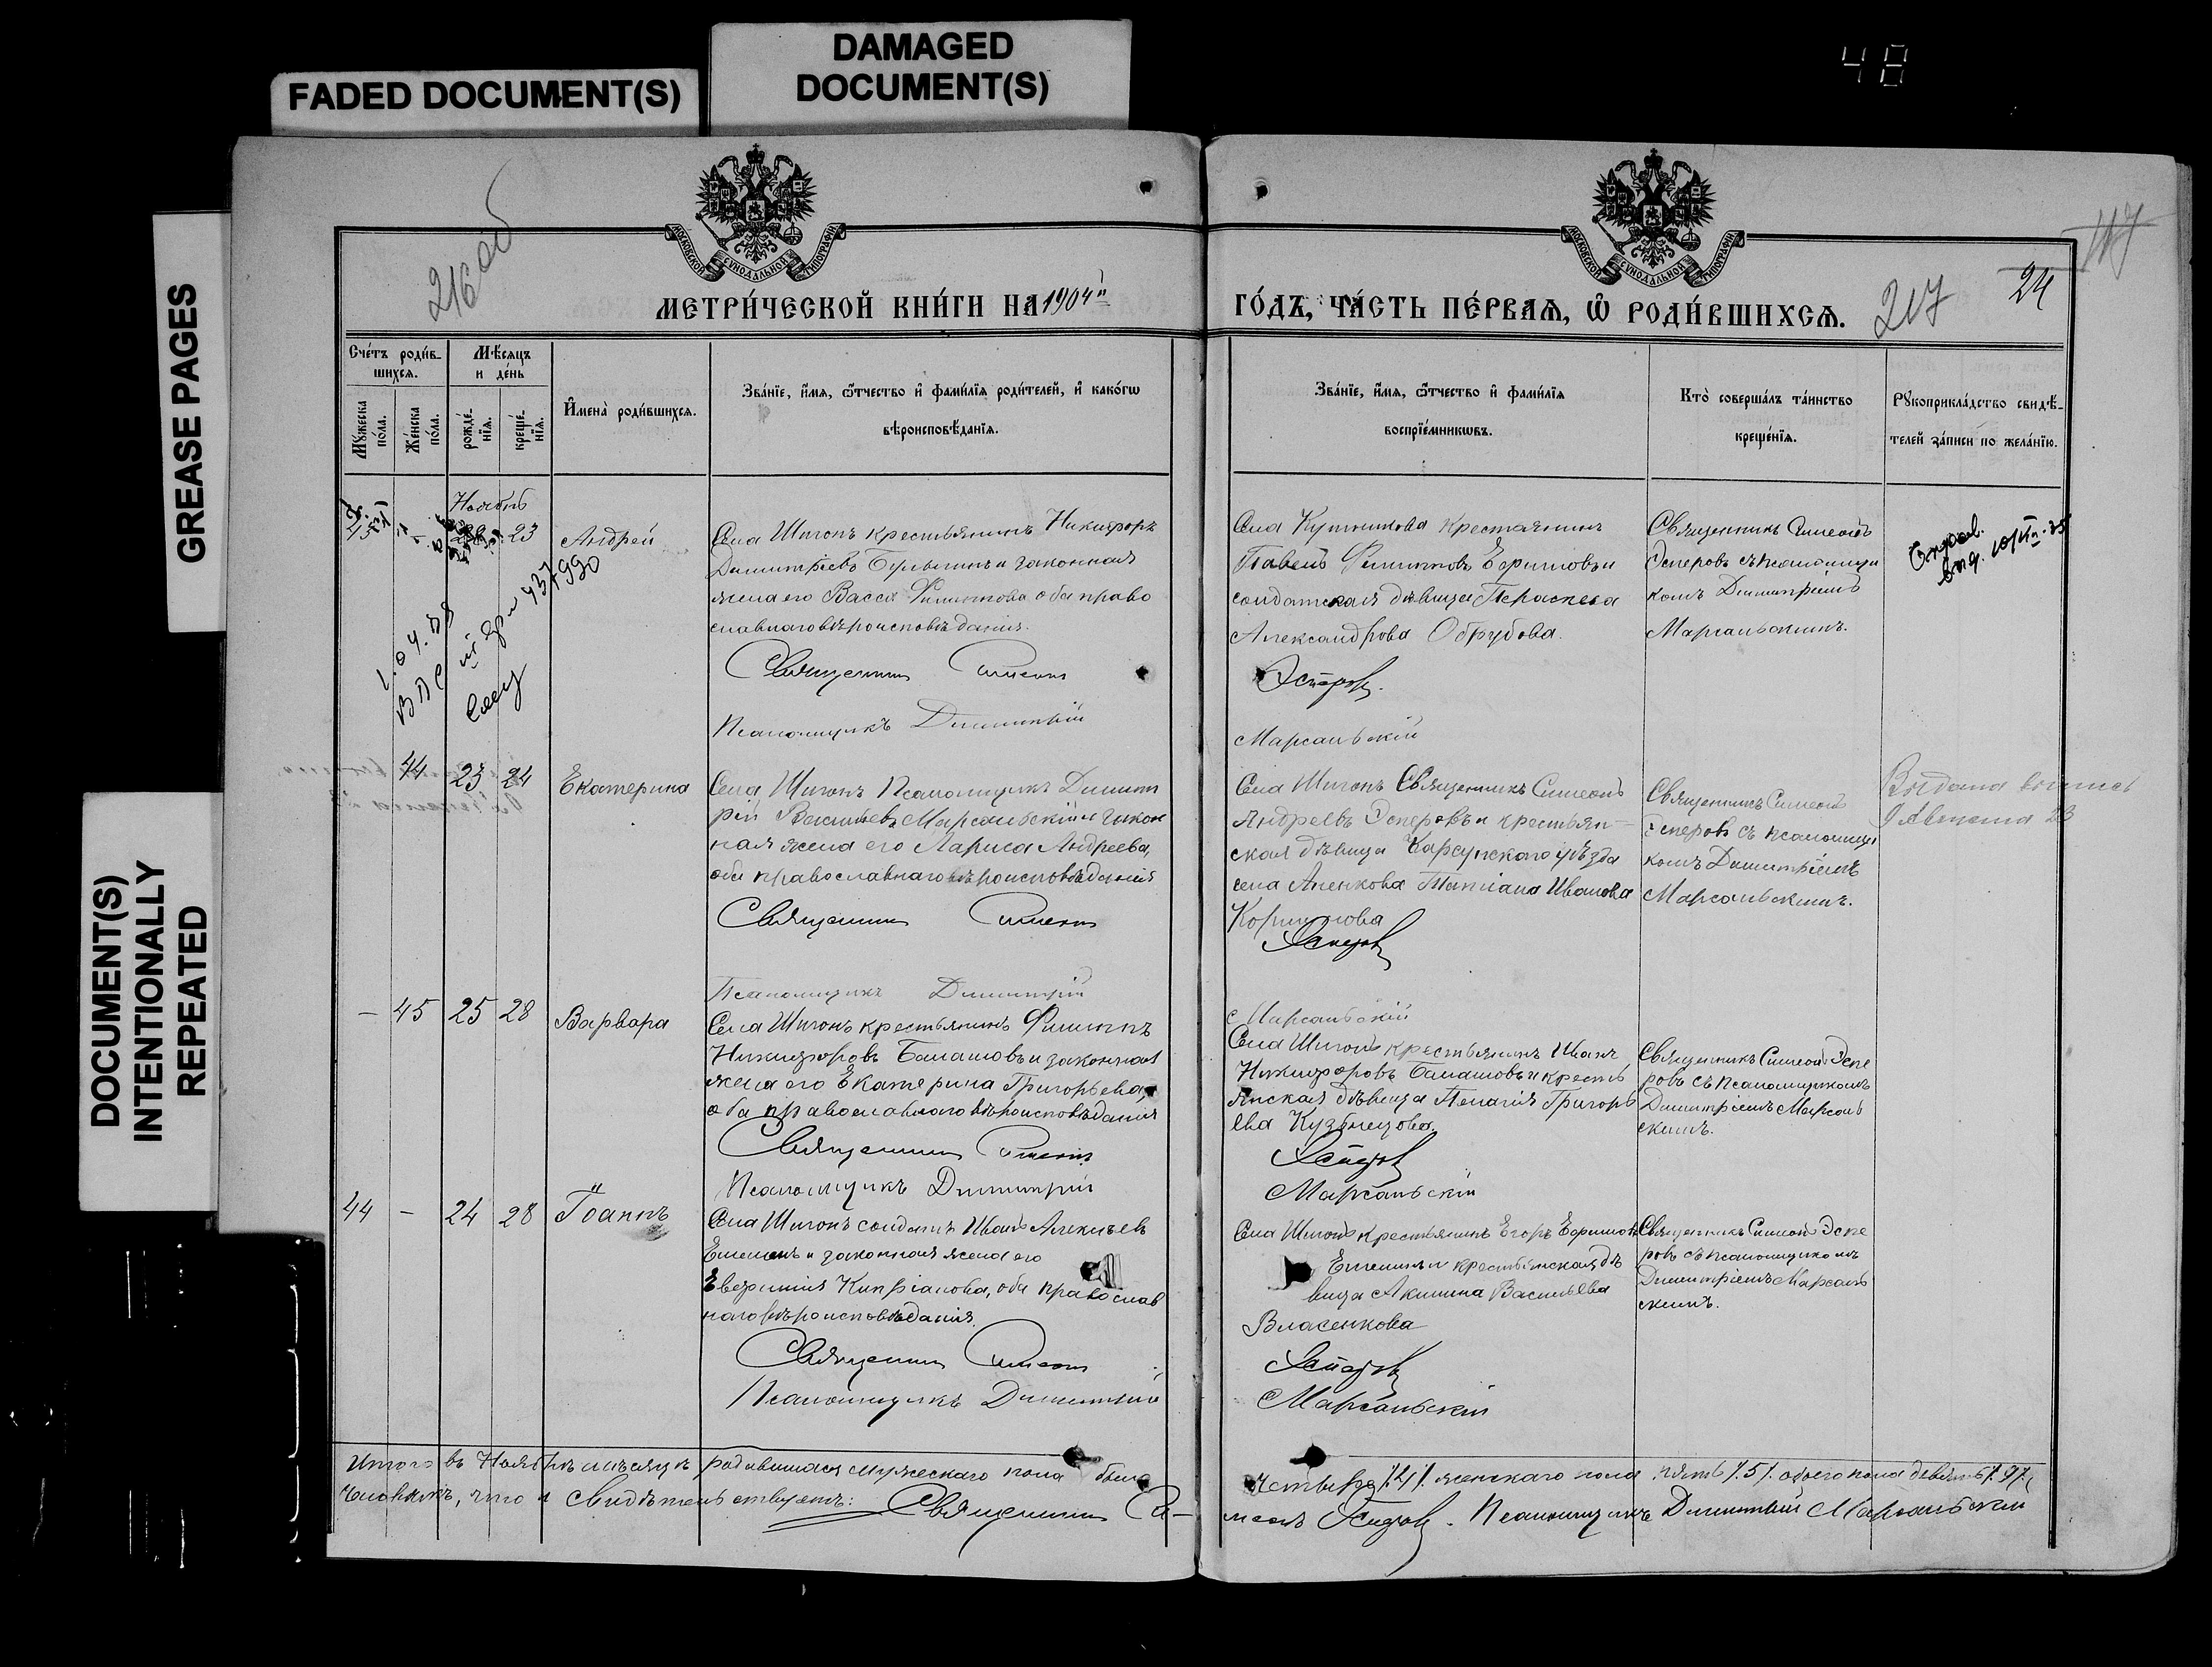 FADED DOCUMENT(S)
DAMAGED
DOCUMENT(S)
48
GREASE PAGES
DOCUMENT(S)
INTENTIONALLY
REPEATED
216 об
МОСКОВСКОЙ СѴНОДАЛЬНОЙ ТИПОГРАФІИ
МОСКОВСКОЙ СѴНОДАЛЬНОЙ ТИПОГРАФІИ
МЕТРИ́ЧЕСКОЙ КНИ́ГИ НА 1904й
ГО́ДЪ, ЧА́СТЬ ПЕ́РВАѦ, Ѽ РОДИ́ВШИХСѦ.
217
24
Сче́тъ роди́в-
шихсѧ.
Мѣ́сѧцъ
и де́нь
Мꙋ́жеска
по́ла.
Же́нска
по́ла.
рожде́-
нїѧ.
креще́-
нїѧ.
И҆мена̀ роди́вшихсѧ.
Зва́нїе, и҆́мѧ, ѻ҆́тчество и҆ фами́лїѧ роди́телей, и҆ како́гѡ
вѣроисповѣ́данїѧ.
Зва́нїе, и҆́мѧ, ѻ҆́тчество и҆ фами́лїѧ
воспрїе́мникѡвъ.
Кто̀ соверша́лъ та́инство
креще́нїѧ.
Рꙋкоприкла́дство свидѣ́-
телей за́писи по жела́нїю.
Ноябрь
43 – 23
Андрей
Села Шигонъ крестьянинъ Никифоръ
Димитріевъ и законная
жена его Васса Филиппова оба право
славнаго вѣроисповѣданія.
Священникъ Симеонъ
Псаломщикъ Димитрій
Села Кушникова крестьянинъ
Павелъ Филипповъ Ефимовъ и
солдатская дѣвица Параскева
Александрова Обрубова.
Эсперовъ.
Марсальскій
Священникъ Симеонъ
Эсперовъ съ псаломщи
комъ Димитріемъ
Марсальскимъ.
44 23 24
Екатерина
Села Шигонъ Псаломщикъ Димит
рій Васильевъ Марсальскій и закон
ная жена его Лариса Андреева,
оба православнаго вѣроисповѣданія
Священникъ Симеонъ
Псаломщикъ Димитрій
Села Шигонъ Священникъ Симеонъ
Андреевъ Эсперовъ и крестьян-
ская дѣвица Карсунскаго уѣзда
села Аненкова Татіана Иванова
Эсперовъ
Марсальскій
Священникъ Симеонъ
Эсперовъ съ псаломщи
комъ Димитріемъ
Марсальскимъ.
Выдана выпись
9 Августа 23
– 45 25 28
Варвара
Села Шигонъ крестьянинъ Филиппъ
Никифоровъ Балашовъ и законная
жена его Екатерина Григорьева,
оба православнаго вѣроисповѣданія
Священникъ Симеонъ
Псаломщикъ Димитрій
Села Шигонъ крестьянинъ Иванъ
Никифоровъ Балашовъ и кресть
янская дѣвица Пелагія Григорь
ева Кузнецова.
Эсперовъ
Марсальскій
Священникъ Симеонъ Эспе
ровъ съ псаломщикомъ
Димитріемъ Марсаль
скимъ.
44 – 24 28
Іоаннъ
Села Шигонъ солдатъ Иванъ Алексѣевъ
и законная жена его
Евфимія Кипріанова, оба православ
наго вѣроисповѣданія.
Священникъ Симеонъ
Псаломщикъ Димитрій
Села Шигонъ крестьянинъ Егоръ Ефимовъ
и крестьянская дѣ
вица Акилина Васильева
Власенкова
Эсперовъ
Марсальскій
Священникъ Симеонъ Эспе
ровъ съ псаломщикомъ
Димитріемъ Марсаль
скимъ.
Итого въ Ноябрѣ мѣсяцѣ родившихся мужескаго пола было четыре /4/. женскаго пола пять /.5/. обоего пола девять /.9/.
человѣкъ, что и свидѣтельствуетъ: Священникъ Си-
меонъ Эсперовъ. Псаломщикъ Димитрій Марсальскій